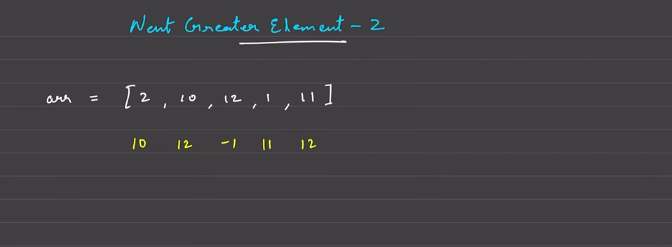 Next Greater Element - 2
arr = [2, 10, 12, 1, 11]
10 12 -1 11 12